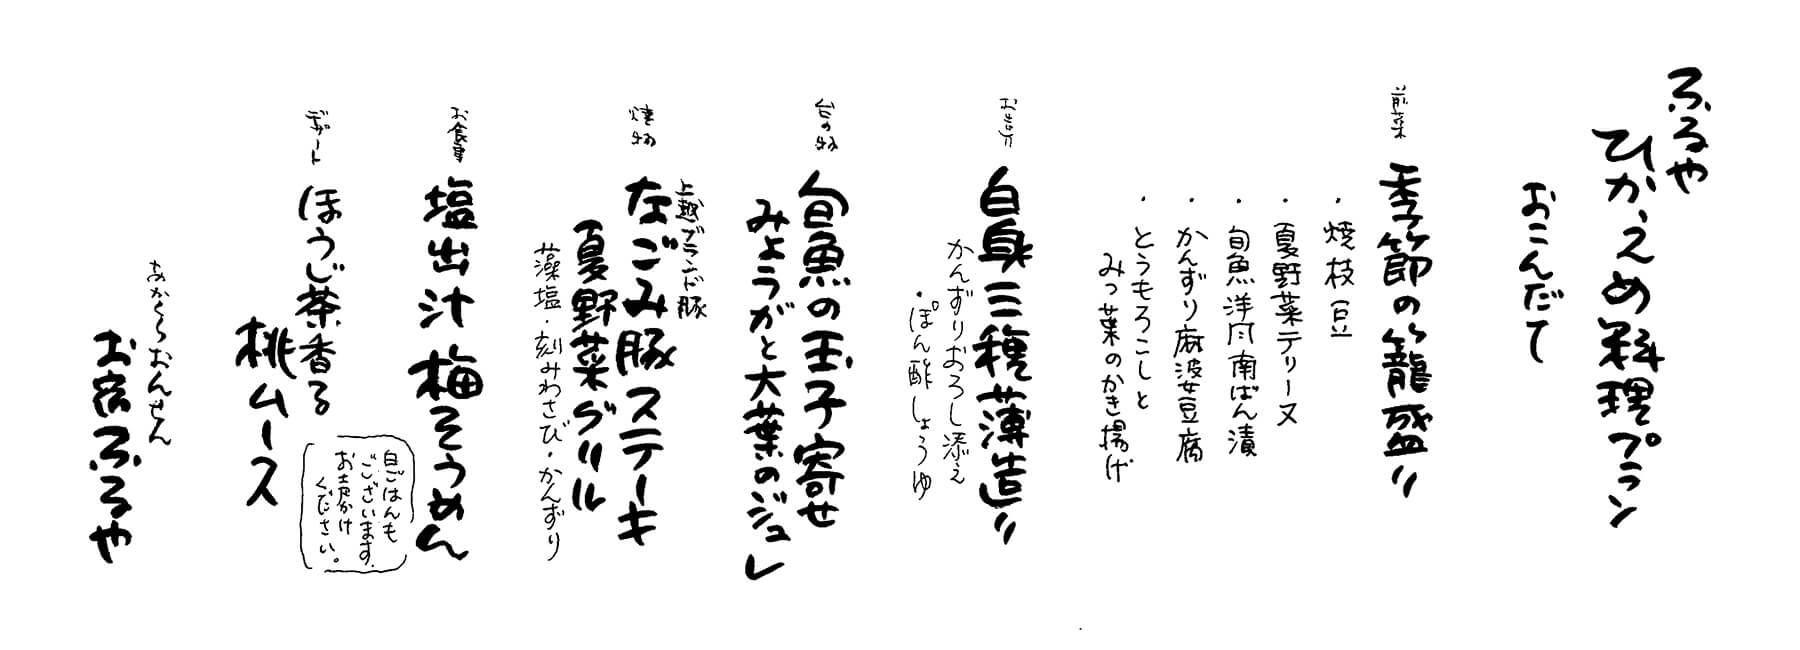 ふるや
ひかえめ料理プラン
おこんだて
前菜
季節の籠盛り
・焼枝豆
・夏野菜テリーヌ
・旬魚洋風南ばん漬
・かんずり麻婆豆腐
・とうもろこしと
みつ葉のかき揚げ
お造り
白身三種薄造り
かんずりおろし添え
・ぽん酢しょうゆ
台の物
旬魚の玉子寄せ
みょうがと大葉のジュレ
焼物
上越ブランド豚
なごみ豚ステーキ
夏野菜グリル
藻塩・刻みわさび・かんずり
お食事
塩出汁梅そうめん
白ごはんも
ございます。
お声かけ
ください。
デザート
ほうじ茶香る
桃ムース
あかくらおんせん
お宿ふるや